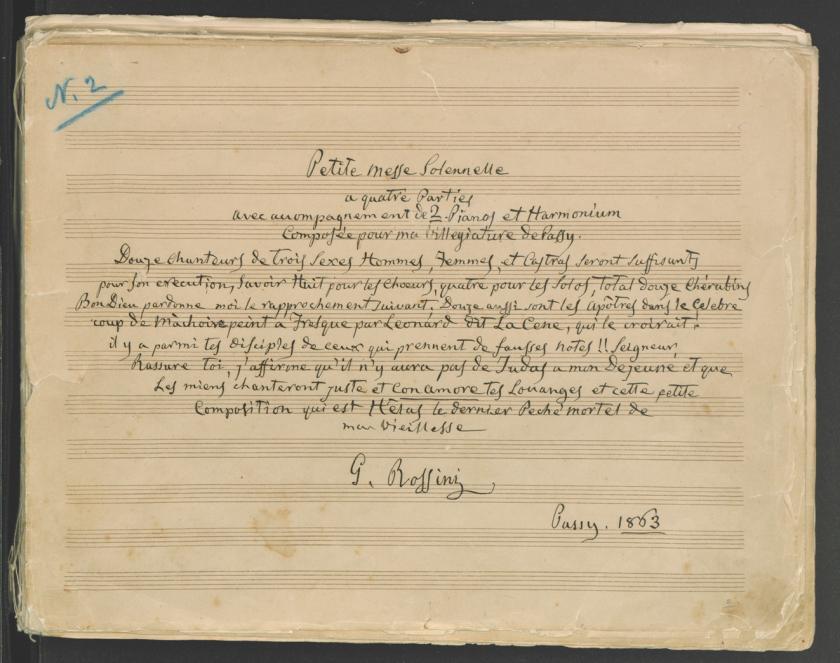 N. 2
Petite Messe Solennelle
a quatre Parties
avec accompagnement de 2 Pianos et Harmonium
Composée pour ma villegiature de Passy.
Douze chanteurs de trois Sexes Hommes, Femmes, et Castras seront suffisants
pour son execution, Savoir Huit pour les Choeurs, quatre pour les Solos, total douze Chérubins
Bon Dieu pardonne moi le rapprochement suivant, Douze aussi sont les Apôtres dans le Celebre
coup de Machoire peint a Fresque par Leonard dit La Cene, qui le croirait.
il y a parmi tes disciples de ceux qui prennent de fausses notes!! Seigneur,
Rassure toi, j'affirme qu'il n'y aura pas de Judas a mon Dejeuné et que
Les miens chanteront juste et Con amore tes Louanges et cette petite
Composition qui est Hélas le dernier Peché mortel de
ma vieillesse
G. Rossini
Passy. 1863